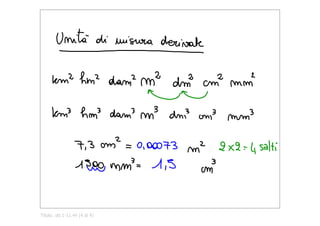 Unità di misura derivate
km² hm² dam² m² dm² cm² mm²
km³ hm³ dam³ m³ dm³ cm³ mm³
7,3 cm² = 0,00073 m² 2x2=4 salti
1500 mm³ = 1,5 cm³
Titolo: ott 1-11.44 (4 di 9)